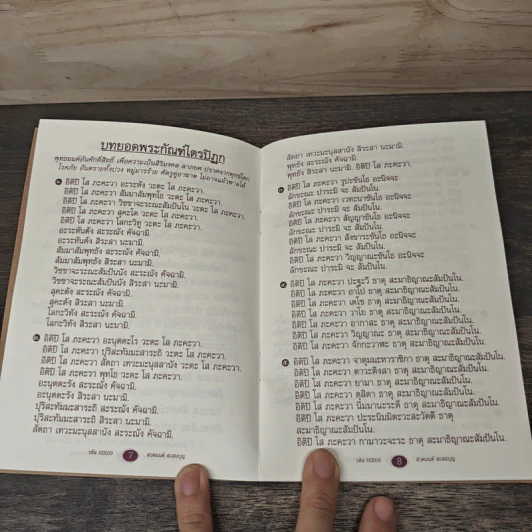 บทยอดพระกัณฑ์ไตรปิฎก
พุทธมนต์อันศักดิ์สิทธิ์ เพื่อความเป็นสิริมงคล ลาภยศ ปราศจากทุกข์โศก
โรคภัย อันตรายทั้งปวง หมู่มารร้าย ศัตรูหมู่อาฆาต ไม่อาจแผ้วพานได้
๑. อิติปิ โส ภะคะวา อะระหัง วะตะ โส ภะคะวา.
อิติปิ โส ภะคะวา สัมมาสัมพุทโธ วะตะ โส ภะคะวา.
อิติปิ โส ภะคะวา วิชชาจะระณะสัมปันโน วะตะ โส ภะคะวา.
อิติปิ โส ภะคะวา สุคะโต วะตะ โส ภะคะวา.
อิติปิ โส ภะคะวา โลกะวิทู วะตะ โส ภะคะวา.
อะระหันตัง สะระณัง คัจฉามิ.
อะระหันตัง สิระสา นะมามิ.
สัมมาสัมพุทธัง สะระณัง คัจฉามิ.
สัมมาสัมพุทธัง สิระสา นะมามิ.
วิชชาจะระณะสัมปันนัง สะระณัง คัจฉามิ.
วิชชาจะระณะสัมปันนัง สิระสา นะมามิ.
สุคะตัง สะระณัง คัจฉามิ.
สุคะตัง สิระสา นะมามิ.
โลกะวิทัง สะระณัง คัจฉามิ.
โลกะวิทัง สิระสา นะมามิ.
๒. อิติปิ โส ภะคะวา อะนุตตะโร วะตะ โส ภะคะวา.
อิติปิ โส ภะคะวา ปุริสะทัมมะสาระถิ วะตะ โส ภะคะวา.
อิติปิ โส ภะคะวา สัตถา เทวะมะนุสสานัง วะตะ โส ภะคะวา.
อิติปิ โส ภะคะวา พุทโธ วะตะ โส ภะคะวา.
อะนุตตะรัง สะระณัง คัจฉามิ.
อะนุตตะรัง สิระสา นะมามิ.
ปุริสะทัมมะสาระถิ สะระณัง คัจฉามิ.
ปุริสะทัมมะสาระถิ สิระสา นะมามิ.
สัตถา เทวะมะนุสสานัง สะระณัง คัจฉามิ.
รหัส 103009 7 สวดมนต์ ละสมบุญ
สัตถา เทวะมะนุสสานัง สิระสา นะมามิ.
พุทธัง สะระณัง คัจฉามิ.
พุทธัง สิระสา นะมามิ. อิติปิ โส ภะคะวา.
๓. อิติปิ โส ภะคะวา รูปะขันโธ อะนิจจะ
ลักขะณะ ปาระมิ จะ สัมปันโน.
อิติปิ โส ภะคะวา เวทะนาขันโธ อะนิจจะ
ลักขะณะ ปาระมิ จะ สัมปันโน.
อิติปิ โส ภะคะวา สัญญาขันโธ อะนิจจะ
ลักขะณะ ปาระมิ จะ สัมปันโน.
อิติปิ โส ภะคะวา สังขาระขันโธ อะนิจจะ
ลักขะณะ ปาระมิ จะ สัมปันโน.
อิติปิ โส ภะคะวา วิญญาณะขันโธ อะนิจจะ
ลักขะณะ ปาระมิ จะ สัมปันโน.
๔. อิติปิ โส ภะคะวา ปะฐะวี ธาตุ สะมาธิญาณะสัมปันโน.
อิติปิ โส ภะคะวา อาโป ธาตุ สะมาธิญาณะสัมปันโน.
อิติปิ โส ภะคะวา เตโช ธาตุ สะมาธิญาณะสัมปันโน.
อิติปิ โส ภะคะวา วาโย ธาตุ สะมาธิญาณะสัมปันโน.
อิติปิ โส ภะคะวา อากาสะ ธาตุ สะมาธิญาณะสัมปันโน.
อิติปิ โส ภะคะวา วิญญาณะ ธาตุ สะมาธิญาณะสัมปันโน.
อิติปิ โส ภะคะวา จักกะวาฬะ ธาตุ สะมาธิญาณะสัมปันโน.
๕. อิติปิ โส ภะคะวา จาตุมมะหาราชิกา ธาตุ สะมาธิญาณะสัมปันโน.
อิติปิ โส ภะคะวา ตาวะติงสา ธาตุ สะมาธิญาณะสัมปันโน.
อิติปิ โส ภะคะวา ยามา ธาตุ สะมาธิญาณะสัมปันโน.
อิติปิ โส ภะคะวา ตุสิตา ธาตุ สะมาธิญาณะสัมปันโน.
อิติปิ โส ภะคะวา นิมมานะระตี ธาตุ สะมาธิญาณะสัมปันโน.
อิติปิ โส ภะคะวา ปะระนิมมิตะวะสะวัตตี ธาตุ
สะมาธิญาณะสัมปันโน.
อิติปิ โส ภะคะวา กามาวะจะระ ธาตุ สะมาธิญาณะสัมปันโน.
รหัส 103009 8 สวดมนต์ ละสมบุญ